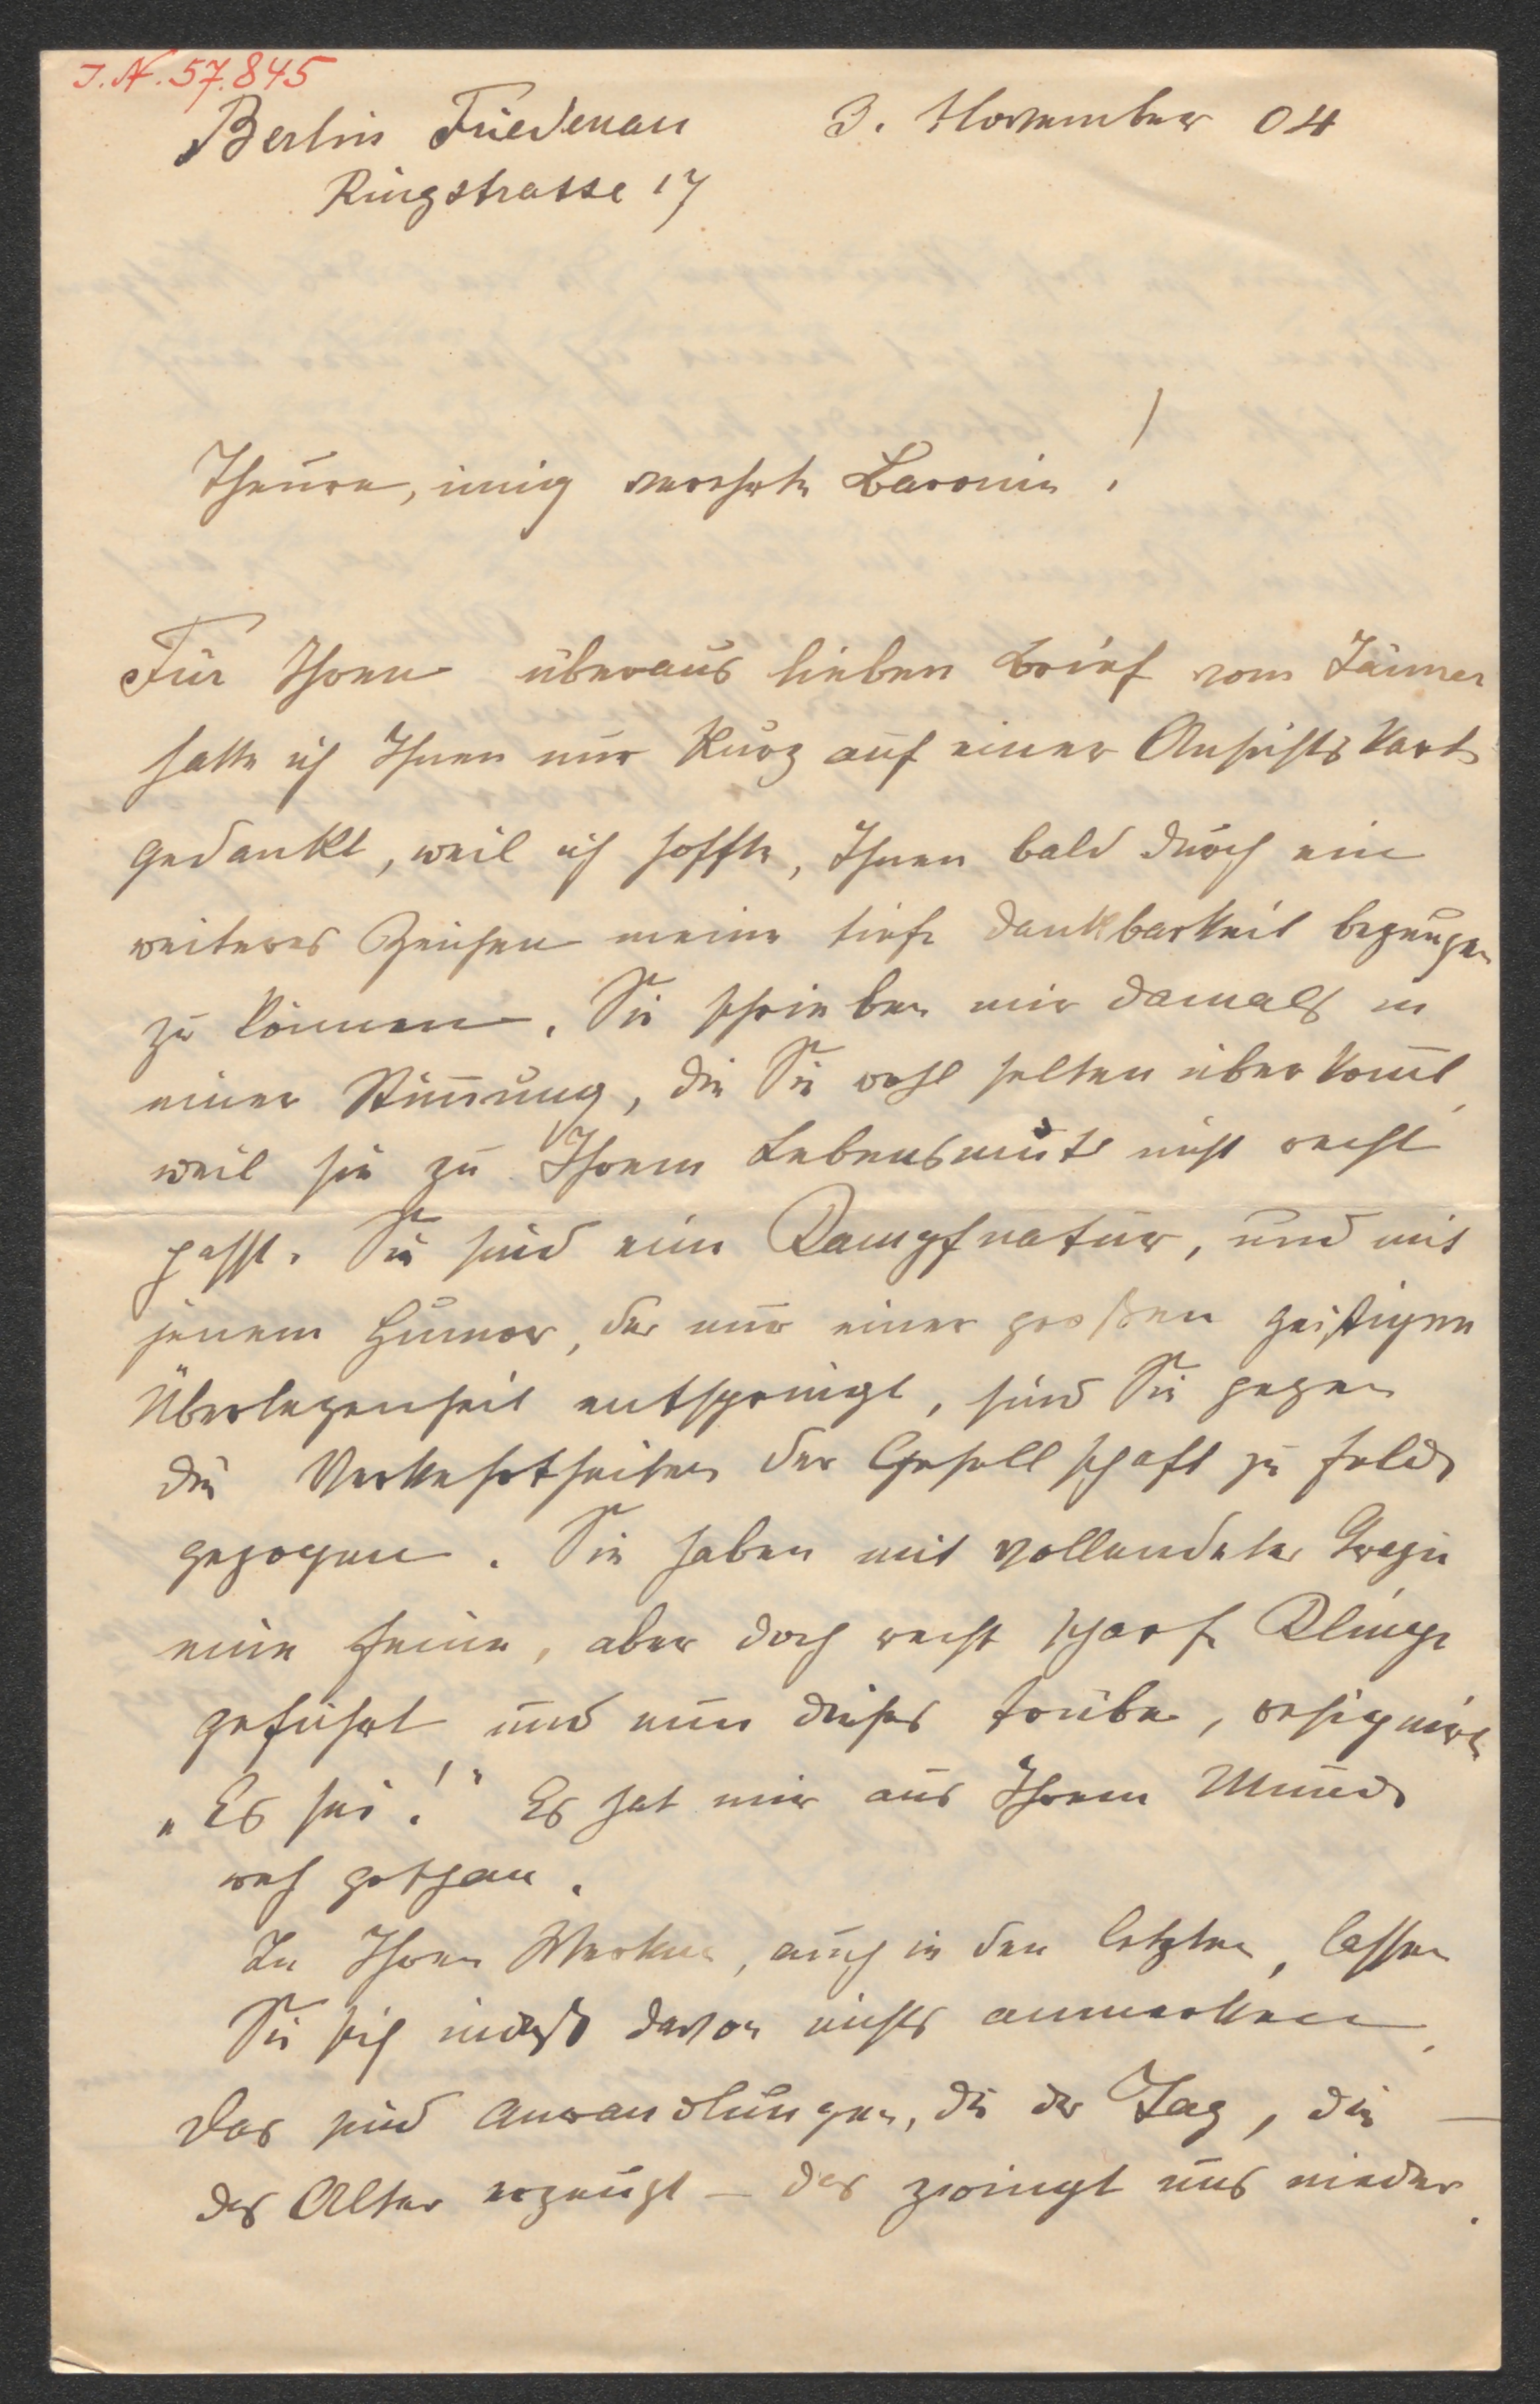 J.N. 57.845
Berlin Friedenau 3. November 04
Ringstrasse 17
Theure, innig verehrte Baronin!
Für Ihren überaus lieben Brief vom Jänner
hatte ich Ihnen nur kurz auf einer Ansichtskarte
gedankt, weil ich hoffte, Ihnen bald durch ein
weiteres Zeichen meine tiefe Dankbarkeit bezeugen
zu können. Sie schrieben mir damals in
einer Stim̄ung, die Sie wohl selten überkom̄t,
weil sie zu Ihrem Lebensmute nicht recht
passt. Sie sind eine Kampfnatur, und mit
jenem Humor, der nur einer großen geistigen
Überlegenheit entspringt, sind Sie gegen
die Verkehrtheiten der Gesellschaft zu Felde
gezogen. Sie haben mit vollendeter Grazie
eine feine, aber doch recht scharfe Klinge
geführt und nun dieses trübe, resignirte
„Es sei!“ Es hat mir aus Ihrem Munde
weh gethan.
In Ihren Werken, auch in den letzten, lassen
Sie sich indeß davon nichts anmerken,
das sind Anwandlungen, die der Tag, die –
das Alter erzeugt – das zwingt uns nieder.